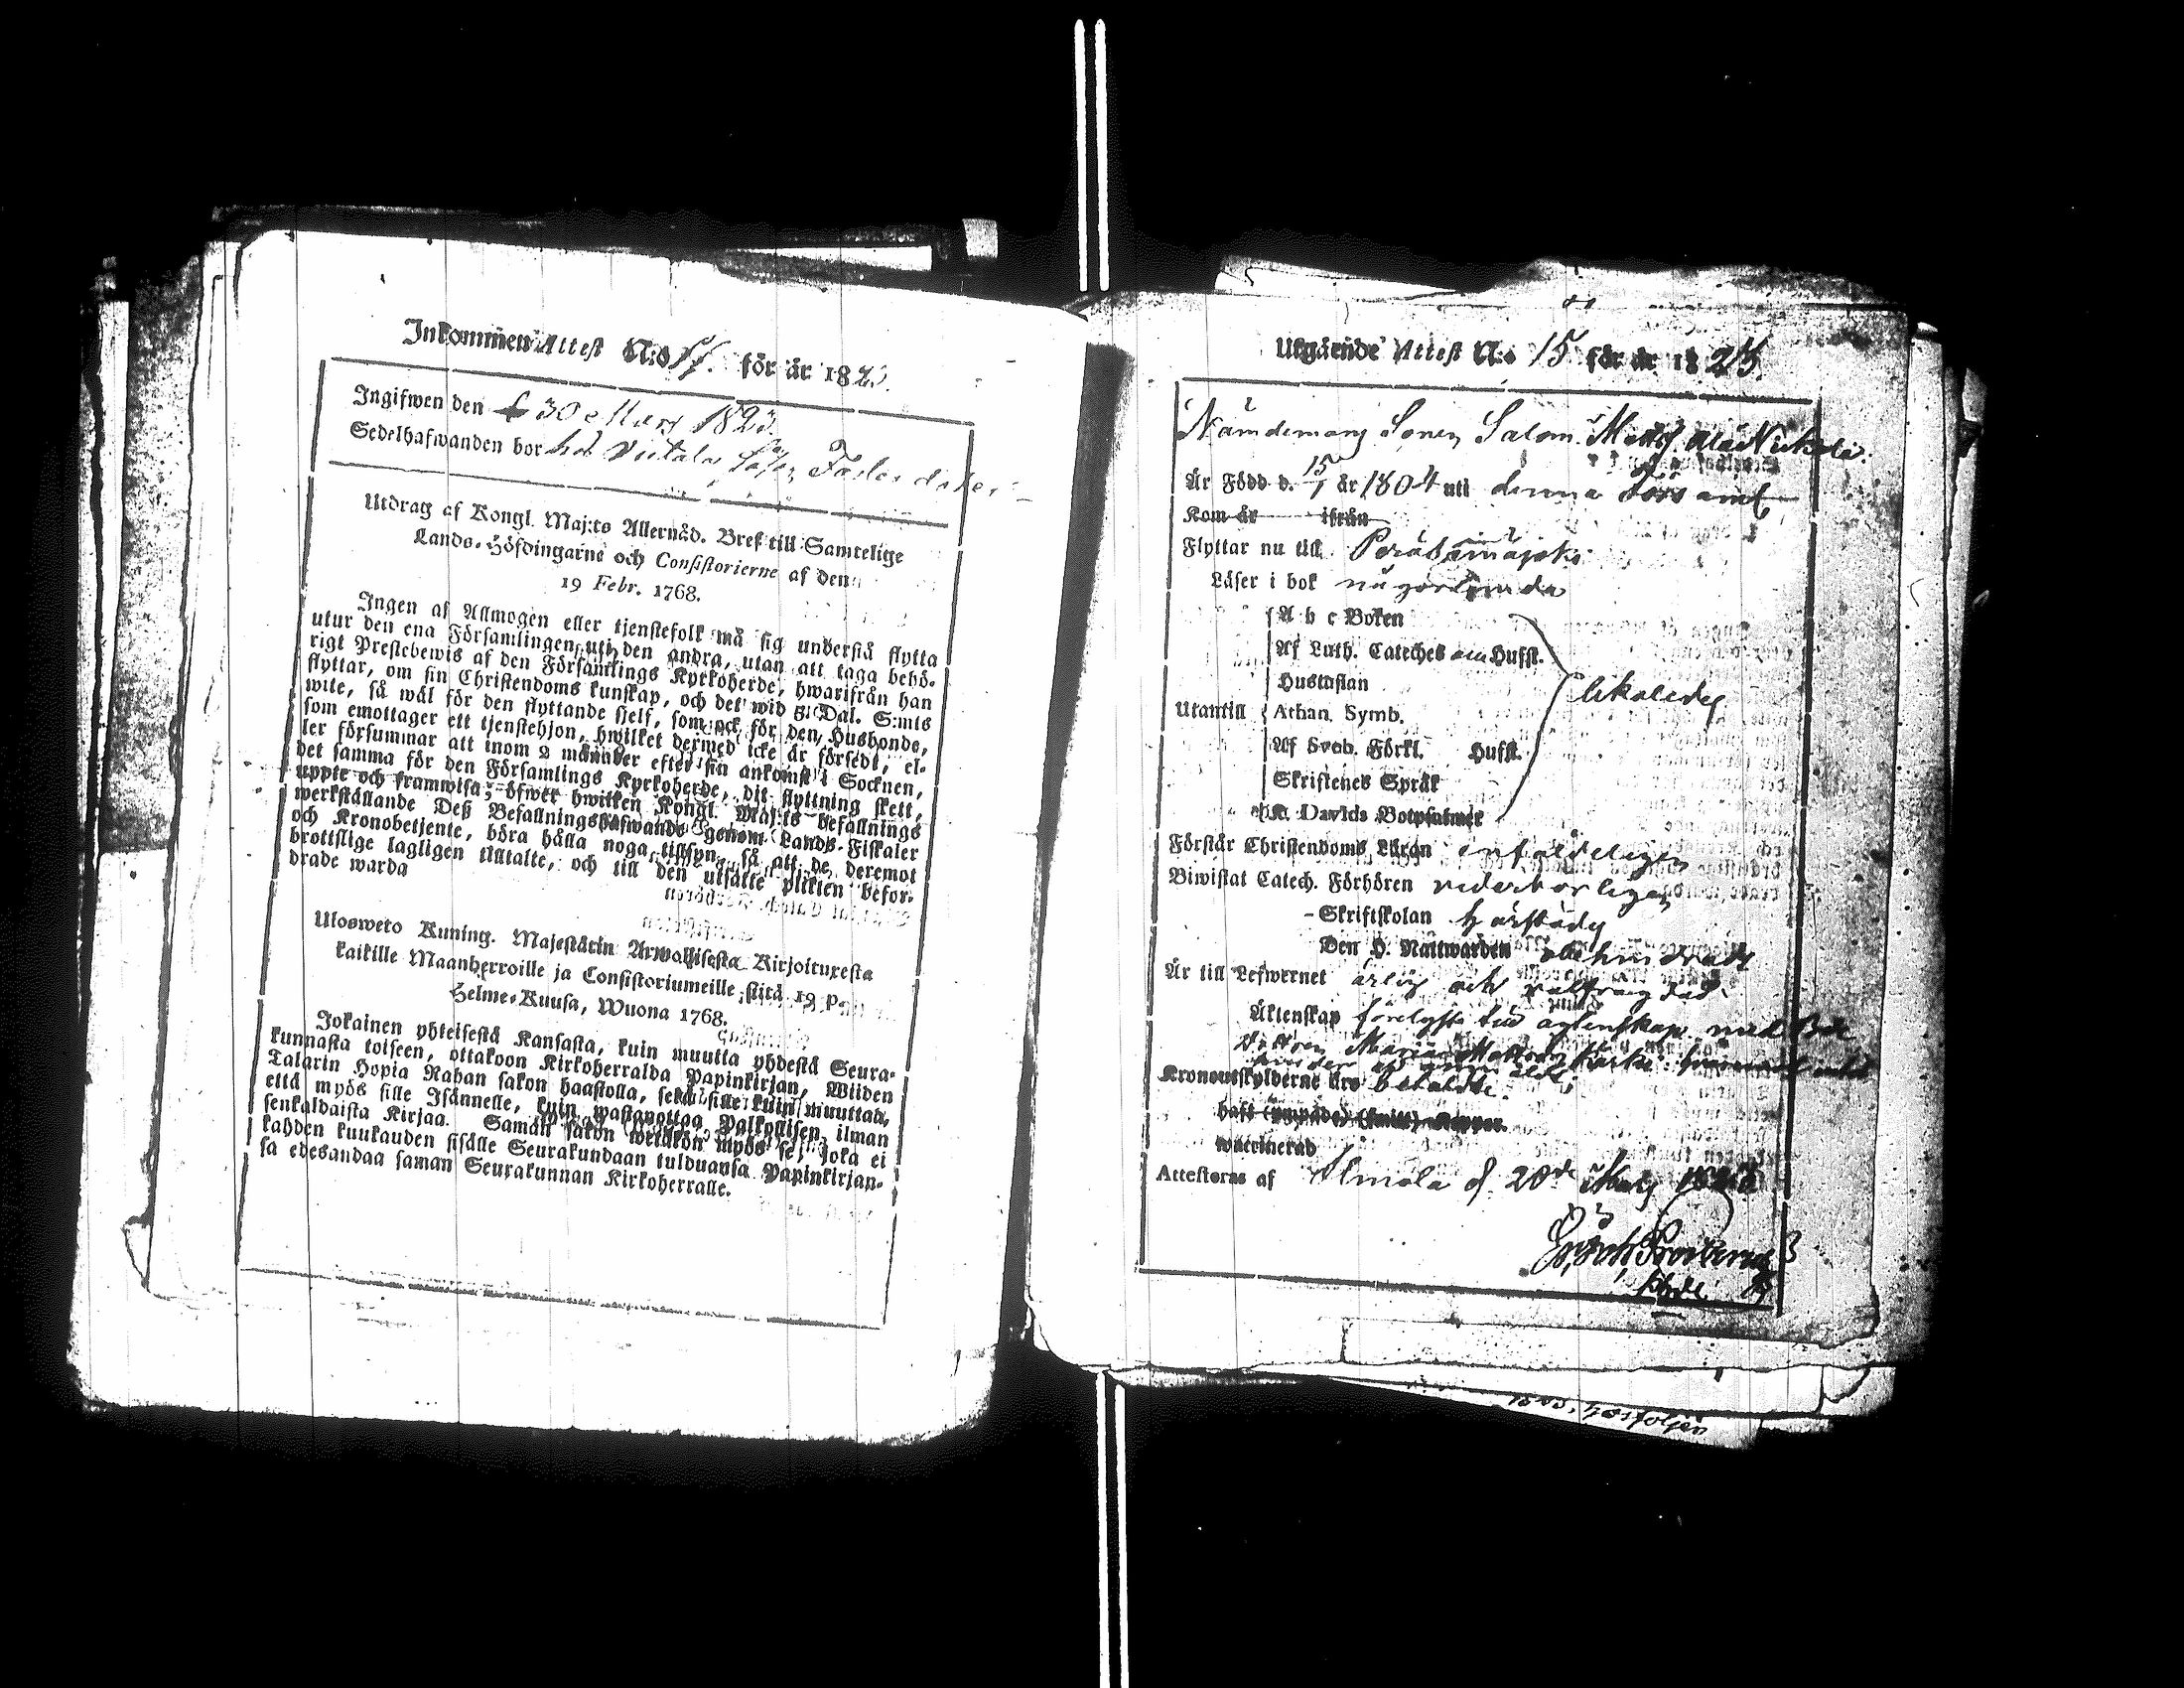 Inkommen Attest N:o för år 182
Ingifwen den 30 Mars 1823
Sedelhafwanden bor hos
Utdrag af Kongl. Maj:ts Allernåd. Bref till Samtelige
Lands-Höfdingarne och Consistorierne af den
19 Febr. 1768.
Ingen af Allmogen eller tjenstefolk må sig understå flytta
utur den ena Församlingen uti den andra, utan att taga behö-
rigt Prestebewis af den Församlings Kyrkoherde, hwarifrån han
flyttar, om sin Christendoms kunskap, och det wid 5 Dal. S:mts
wite, så wäl för den flyttande sjelf, som ock för den Husbonde,
som emottager ett tjenstehjon, hwilket dermed icke är försedt, el-
ler försummar att inom 2 månader efter sin ankomst i Socknen,
det samma för den Församlings Kyrkoherde, dit flyttning skett,
uppte och framwisa; öfwer hwilken Kongl. Maj:ts befallnings
werkställande Deß Befallningshafwande genom Lands-Fiskaler
och Kronobetjente, böra hålla noga tillsyn, så att de deremot
brottslige lagligen tilltalte, och till den utsatte plikten befor-
drade warda
Ulosweto Kuning. Majestätin Armollisesta Kirjoituxesta
kaikille Maanherroille ja Consistoriumeille, siitä 19 p.
Helme-Kuusa, Wuona 1768.
Jokainen yhteisestä Kansasta, kuin muutta yhdestä Seura-
kunnasta toiseen, ottakoon Kirkoherralda Papinkirjan, Wiiden
Talarin Hopia Rahan sakon haastolla, sekä sille kuin muuttaa,
että myös sille Isännelle, kuin wastanottaa Palkollisen ilman
senkaldaista Kirjaa. Samän sakon wetäkön myös se, joka ei
kahden kuukauden sisälle Seurakundaan tulduansa Papinkirjan-
sa edesandaa saman Seurakunnan Kirkoherralle.
Utgående Attest N:o 15 för år 1823
Nämdemans Sonen Salom. Matts.
Är Född d. 15/1 år 1804 uti denna Församl.
Kom år ifrån
Flyttar nu till Peräseinäjoki
Läser i bok någorlunda
A b c Boken
Af Luth. Cateches Hufst.
Hustaflan
Utantill Athan. Symb. likaledes
Af Sveb. Förkl. Hufst.
Skriftenes Språk
K. Davids Botpsalmer
Förstår Christendoms Läran enfaldeligen
Biwistat Catech. Förhören vederbörligen
Skriftskolan härstädes
Den H. Nattwarden
Är till Lefwernet ärlig och
Äktenskap förelyst till ägtenskap med
dottren Maria
Kronoutskylderne äro betalde.
haft Koppor.
waccinerad
Attesteras af Ilmola d. 20de Mars 1823